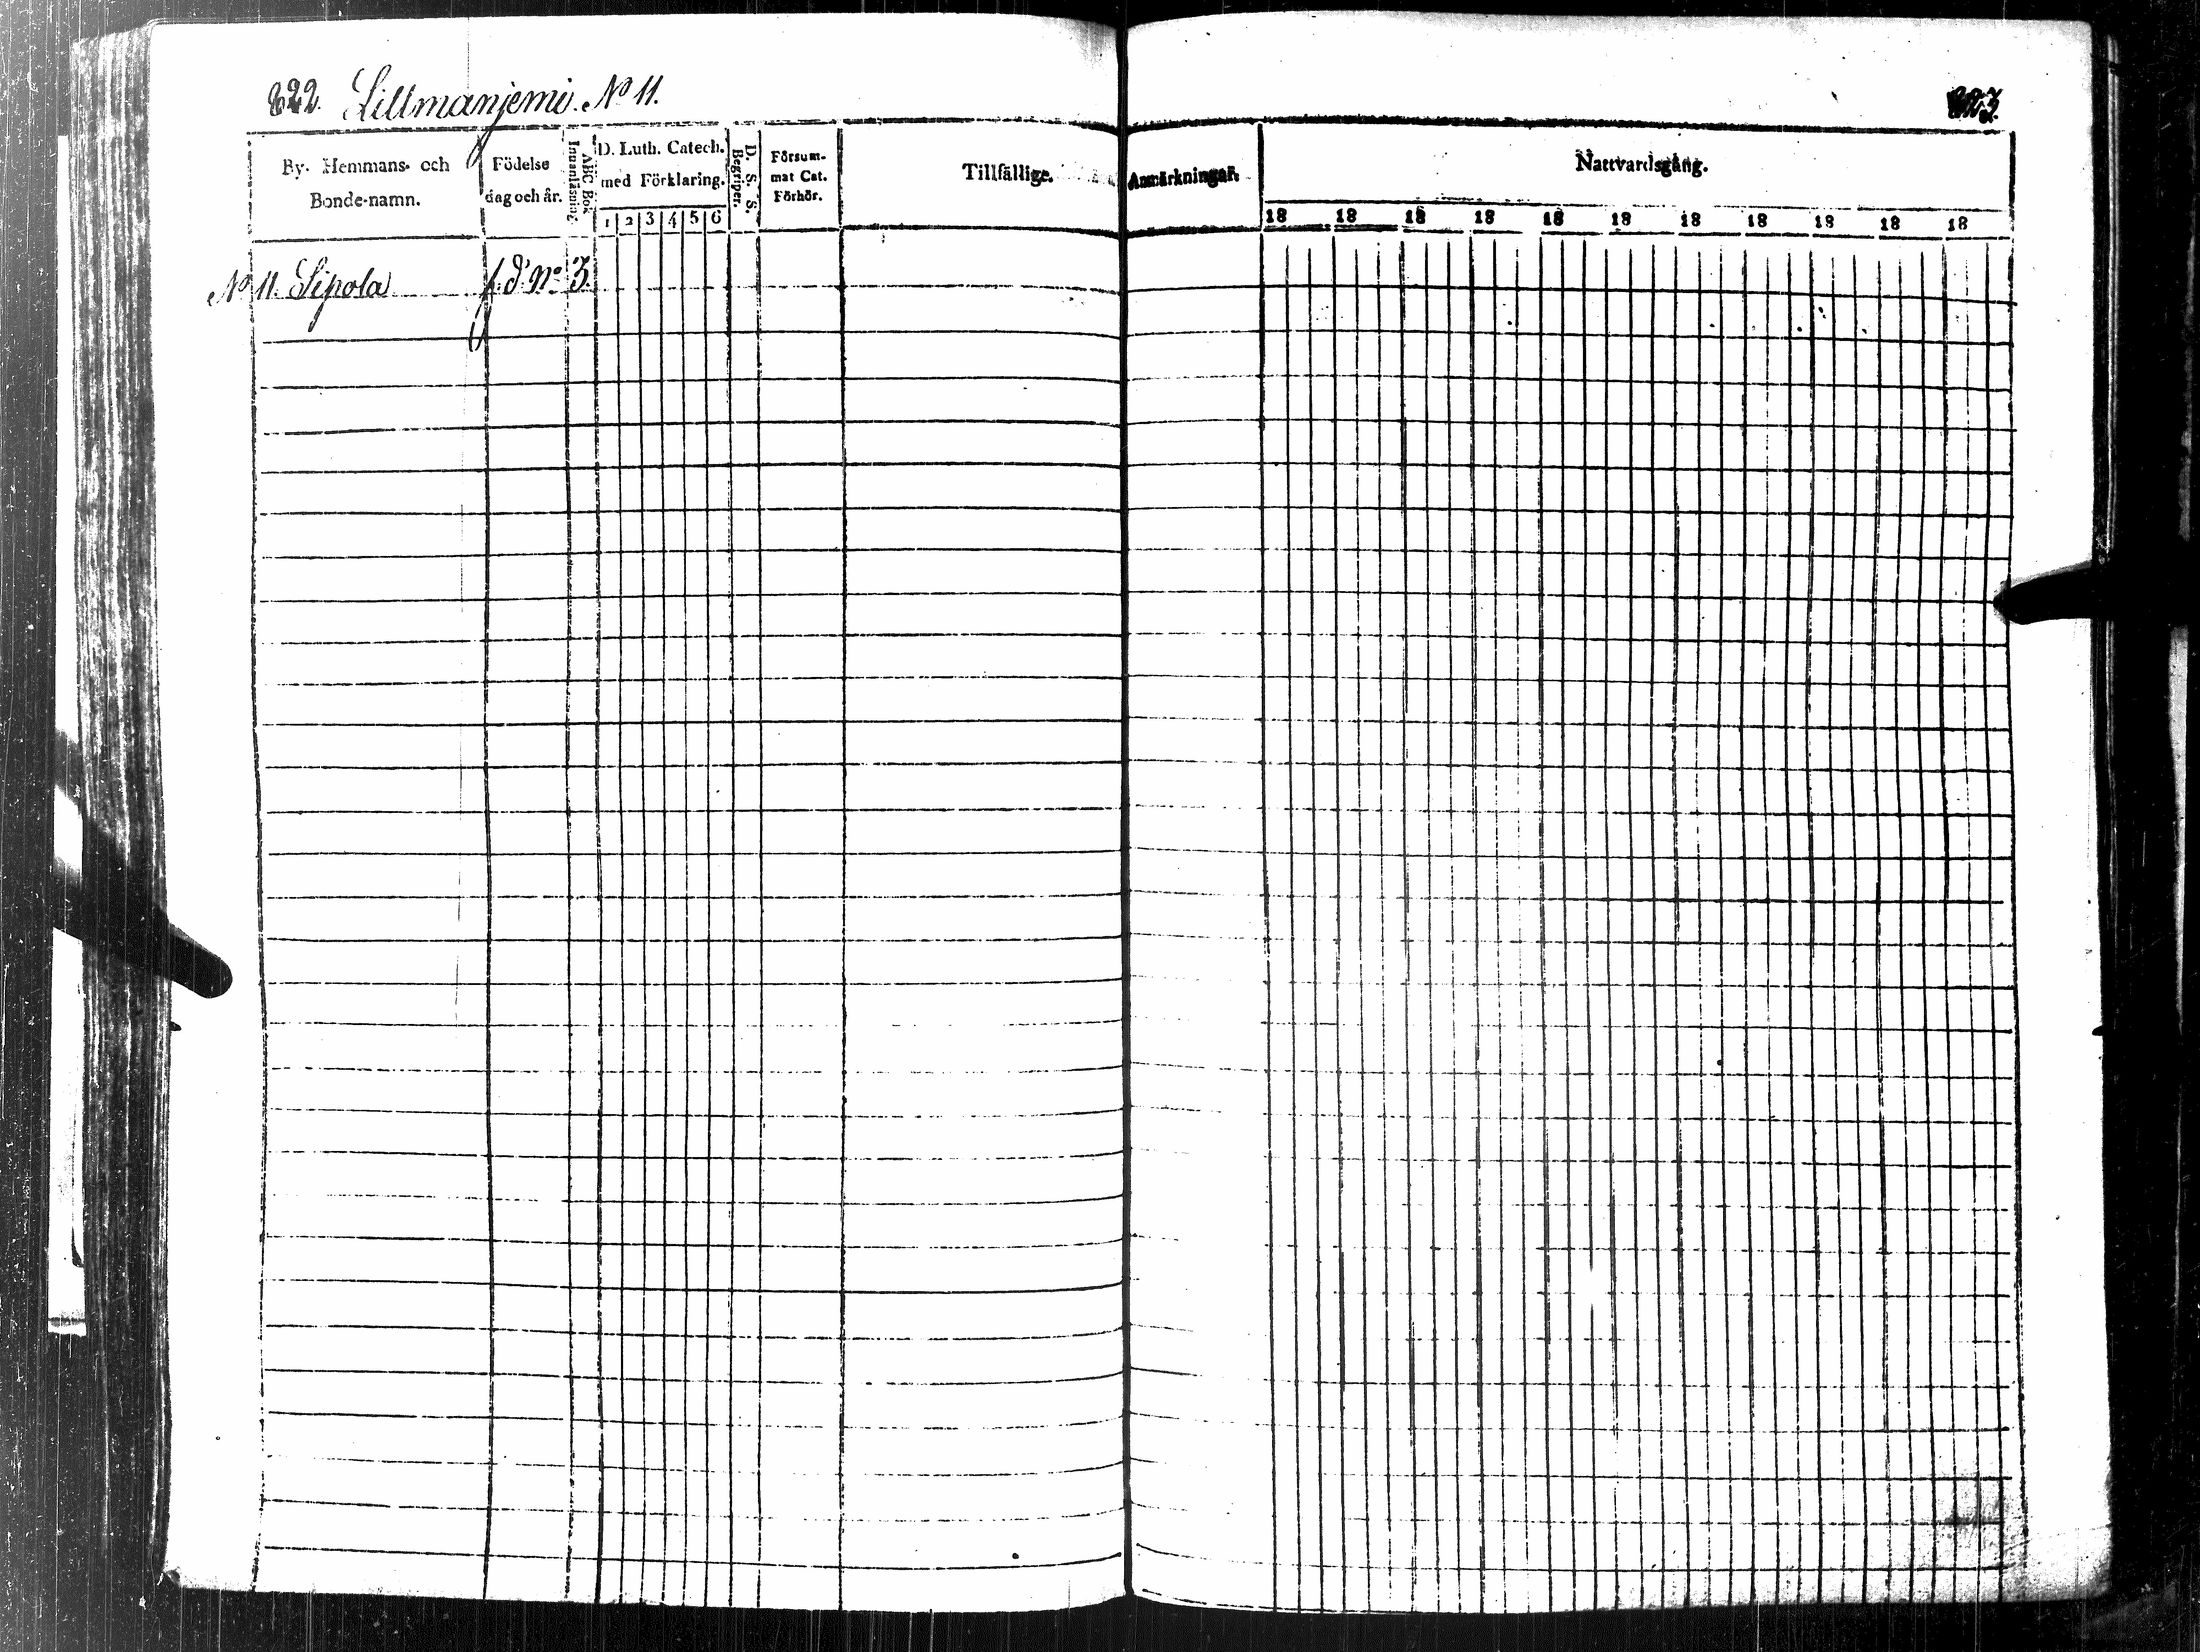 822. Lillmanjemi. No 11.
823.
By- Hemmans- och Bonde-namn.
Födelse dag och år.
ABC Bok
Innanläsning
D. Luth. Catech. med Förklaring.
1 2 3 4 5 6
D. S. S.
Begriper.
Försum-
mat Cat.
Förhör.
Tillfällige. Anmärkningar.
Nattvardsgång.
18 18 18 18 18 18 18 18 18 18 18
No 11. Sipola f. d. No 3.